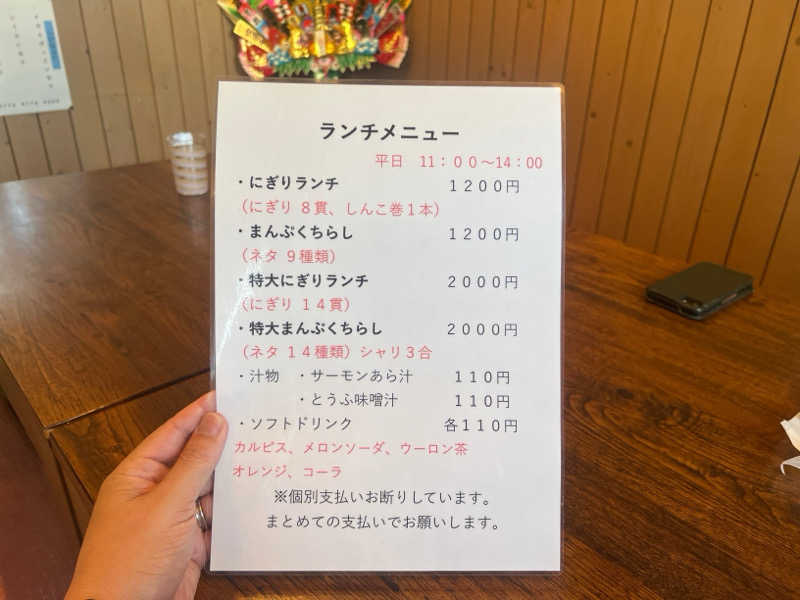 ランチメニュー
平日 11：００～14：00
・にぎりランチ １２００円
（にぎり ８貫、しんこ巻１本）
・まんぷくちらし １２００円
（ネタ ９種類）
・特大にぎりランチ ２０００円
（にぎり １４貫）
・特大まんぷくちらし ２０００円
（ネタ １４種類）シャリ３合
・汁物 ・サーモンあら汁 １１０円
・とうふ味噌汁 １１０円
・ソフトドリンク 各１１０円
カルピス、メロンソーダ、ウーロン茶
オレンジ、コーラ
※個別支払いお断りしています。
まとめての支払いでお願いします。